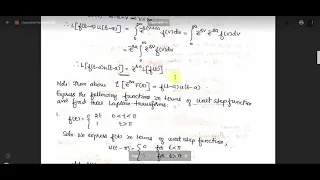 ∴ L[f(t-a)u(t-a)] = ∫₀^∞ e^{-s(v+a)} f(v)dv = ∫₀^∞ e^{-sv} e^{-sa} f(v)dv
= e^{-sa} ∫₀^∞ e^{-sv} f(v)dv
∴ L[f(t-a)u(t-a)] = e^{-sa} L[f(t)]
Note: From above L⁻¹[e^{-sa} F(s)] = f(t-a)u(t-a)
Express the following functions in terms of unit step function
and find their Laplace transforms:
1. f(t) = { 2t 0<t<π
1 t>π
Soln: We express f(t) in terms of unit step function,
u(t-π) = { 0 for t<π
1 for t>π